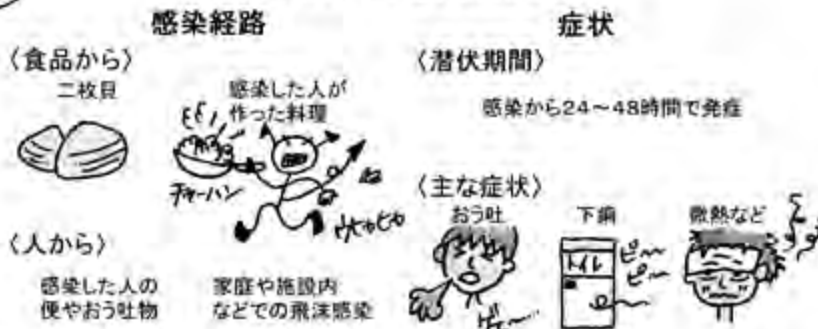 感染経路
〈食品から〉
二枚貝
感染した人が
作った料理
チャーハン
〈人から〉
感染した人の
便やおう吐物
家庭や施設内
などでの飛沫感染
症状
〈潜伏期間〉
感染から24〜48時間で発症
〈主な症状〉
おう吐
下痢
微熱など
トイレ
ピ〜
ピ〜